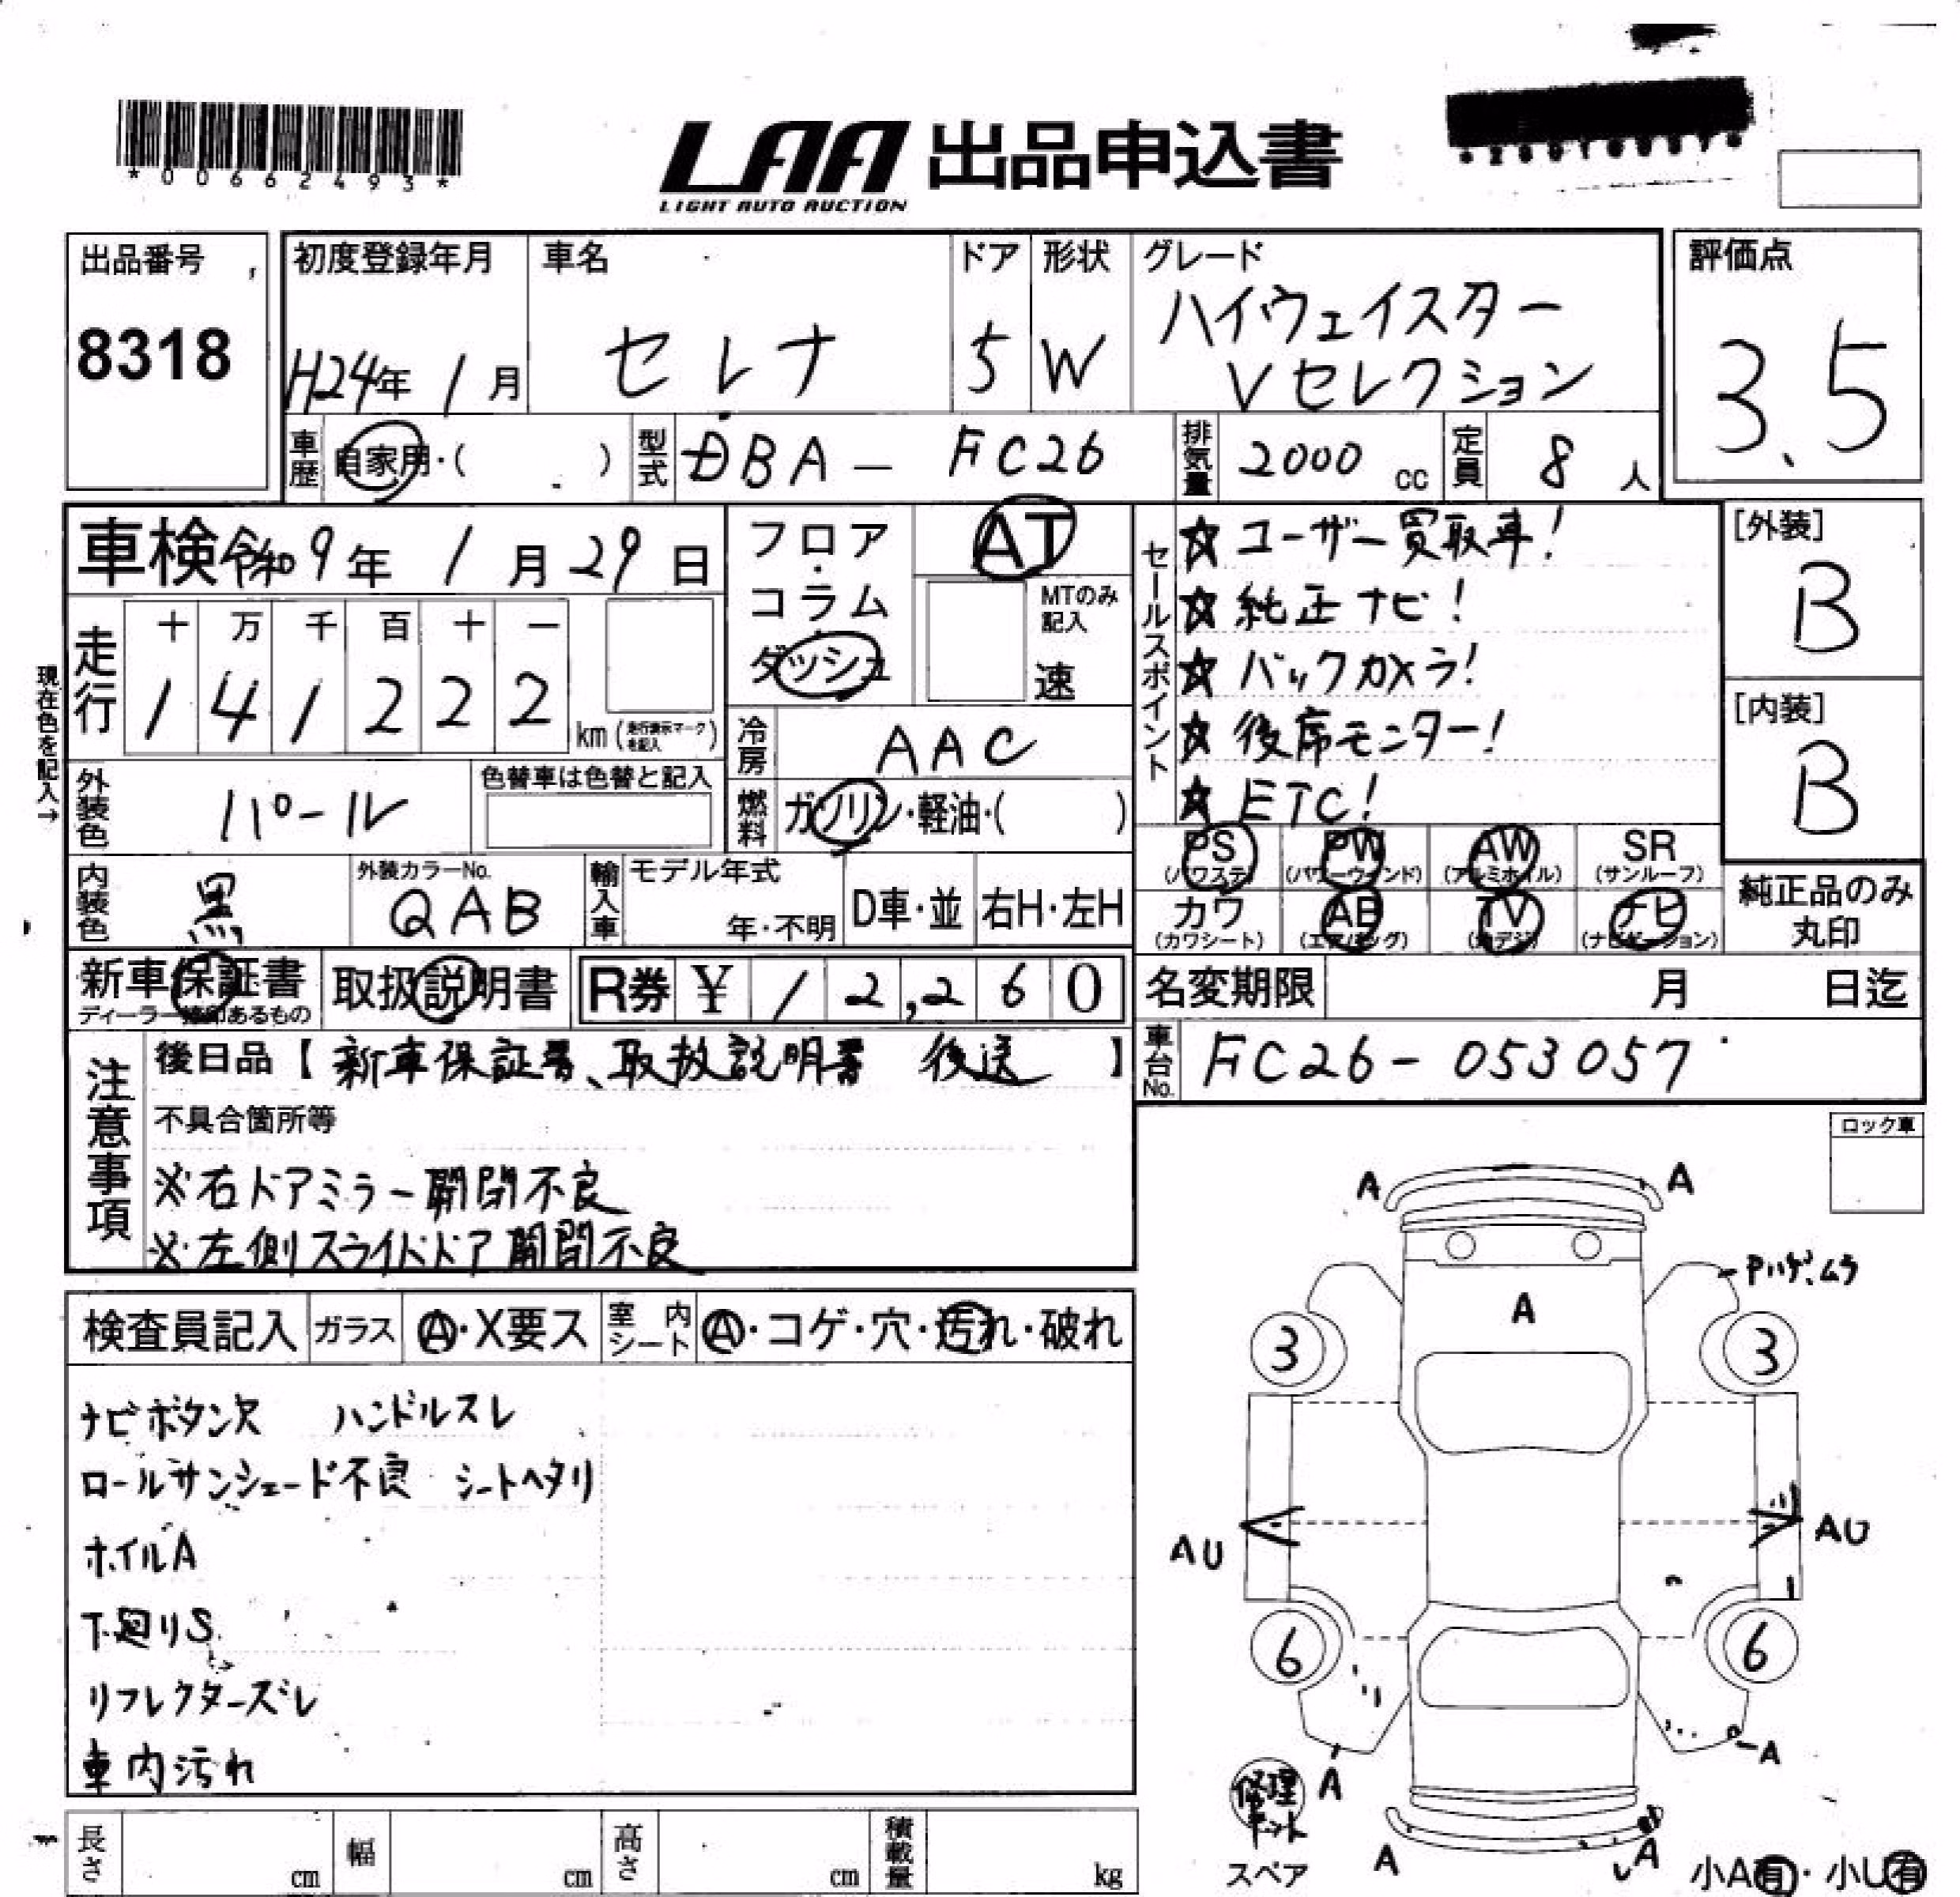 *00662493*
LAA 出品申込書
LIGHT AUTO AUCTION
出品番号
8318
初度登録年月
H24年 1月
車名
セレナ
ドア
5
形状
W
グレード
ハイウェイスター
Vセレクション
評価点
3.5
車歴 自家用・( )
型式 DBA－FC26
排気量 2000 cc
定員 8 人
車検 令和9年 1月 29日
現在色を記入→
走行
十 万 千 百 十 一
1 4 1 2 2 2
km (走行表示マークを記入)
フロア・コラム
ダッシュ
AT
MTのみ記入
速
冷房 AAC
燃料 ガソリン・軽油・( )
外装色 パール
色替車は色替と記入
内装色 黒
外装カラーNo.
QAB
輸入車
モデル年式
年・不明
D車・並
右H・左H
セールスポイント
☆ユーザー買取車!
☆純正ナビ!
☆バックカメラ!
☆後席モニター!
☆ETC!
PS PW AW SR
(パワステ) (パワーウィンド) (アルミホイル) (サンルーフ)
カワ AB TV ナビ
(カワシート) (エアバッグ) (地デジ) (ナビゲーション)
[外装]
B
[内装]
B
純正品のみ
丸印
新車保証書
ディーラー捺印あるもの
取扱説明書
R券 ¥ 12,260
名変期限 月 日迄
車台No. FC26-053057
注意事項
後日品【新車保証書、取扱説明書 後送】
不具合箇所等
※右ドアミラー開閉不良
※左側スライドドア開閉不良
ロック車
検査員記入
ガラス Ⓐ・X要ス
室内シート Ⓐ・コゲ・穴・汚れ・破れ
ナビボタン欠 ハンドルスレ
ロールサンシェード不良 シートヘタリ
ホイルA
下廻りS
リフレクターズレ
車内汚れ
A A
Pハゲ、ムラ
A
3 3
AU AU
6 6
A A
修理キット
スペア
A A
小A有・小U有
長さ cm
幅 cm
高さ cm
積載量 kg